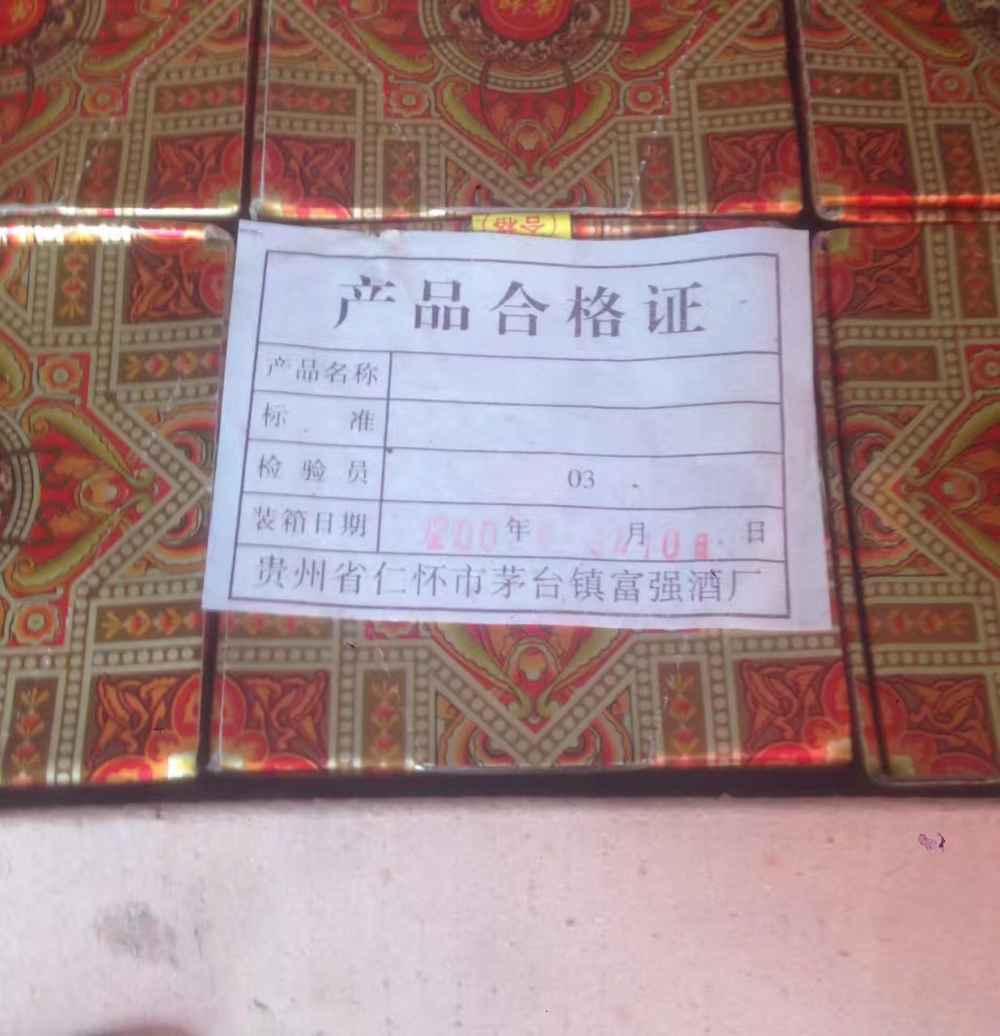 合格
产品合格证
产品名称
标 准
检 验 员 03
装箱日期 年 月 日
贵州省仁怀市茅台镇富强酒厂